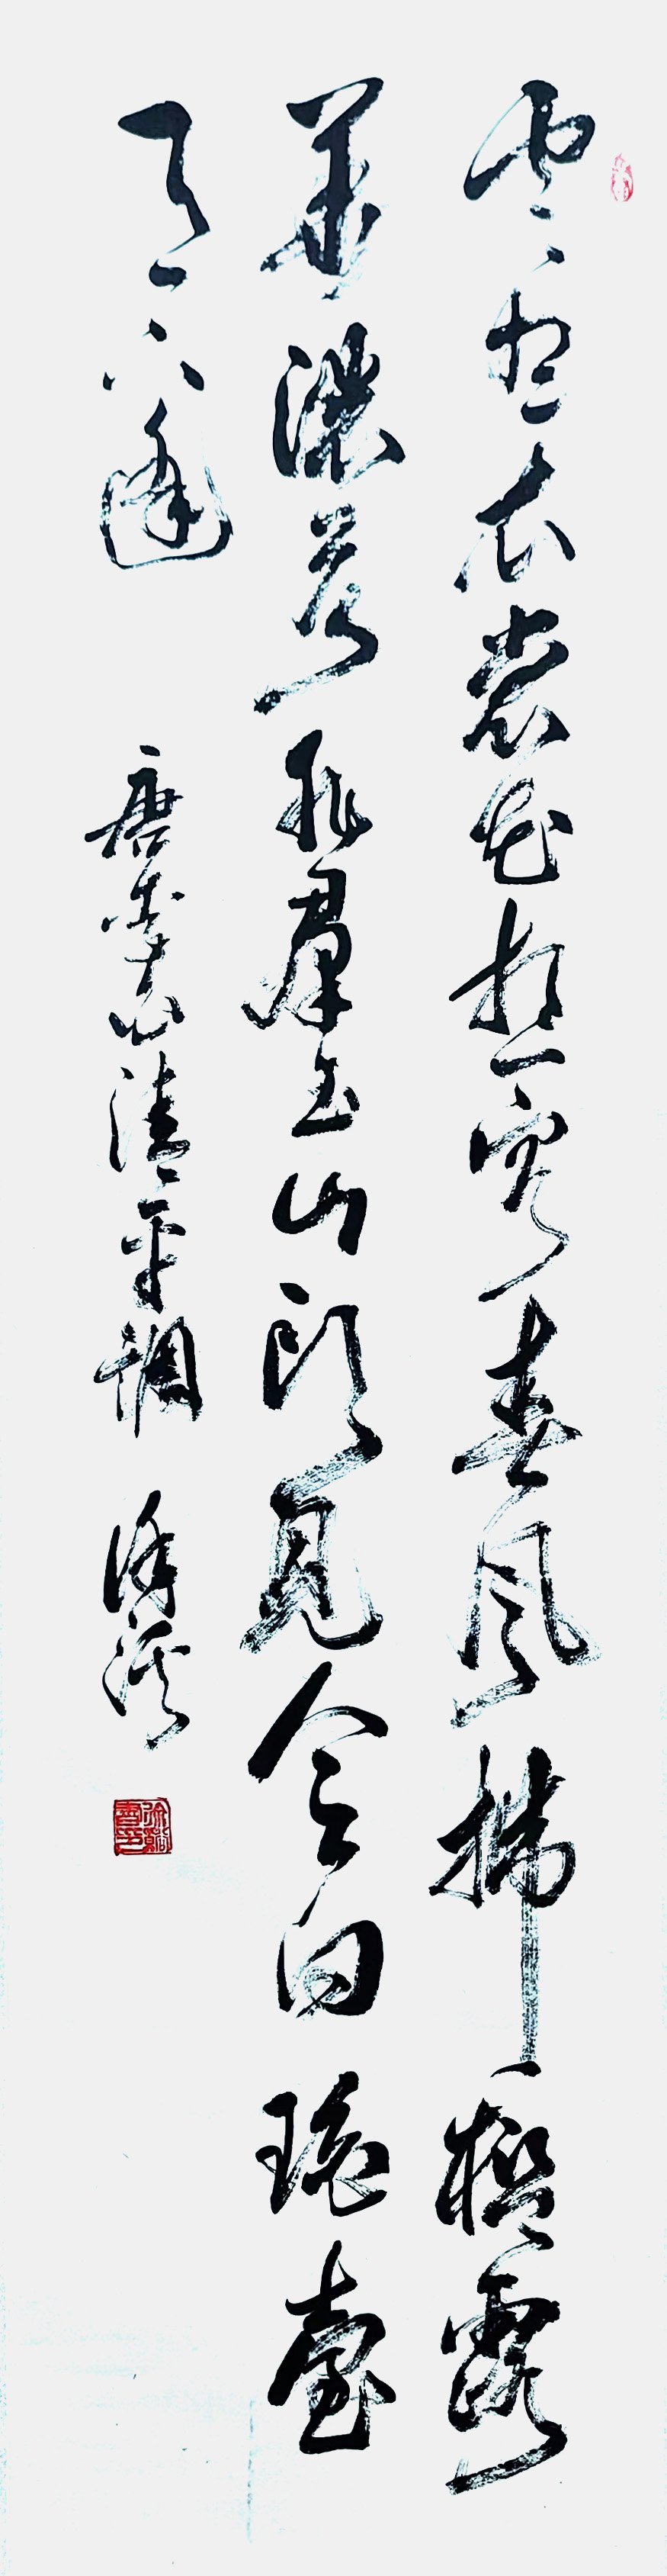 雲想衣裳花想容春風拂檻露
華濃若非群玉山頭見会向瑤臺
月下逢 唐李白清平調 徐